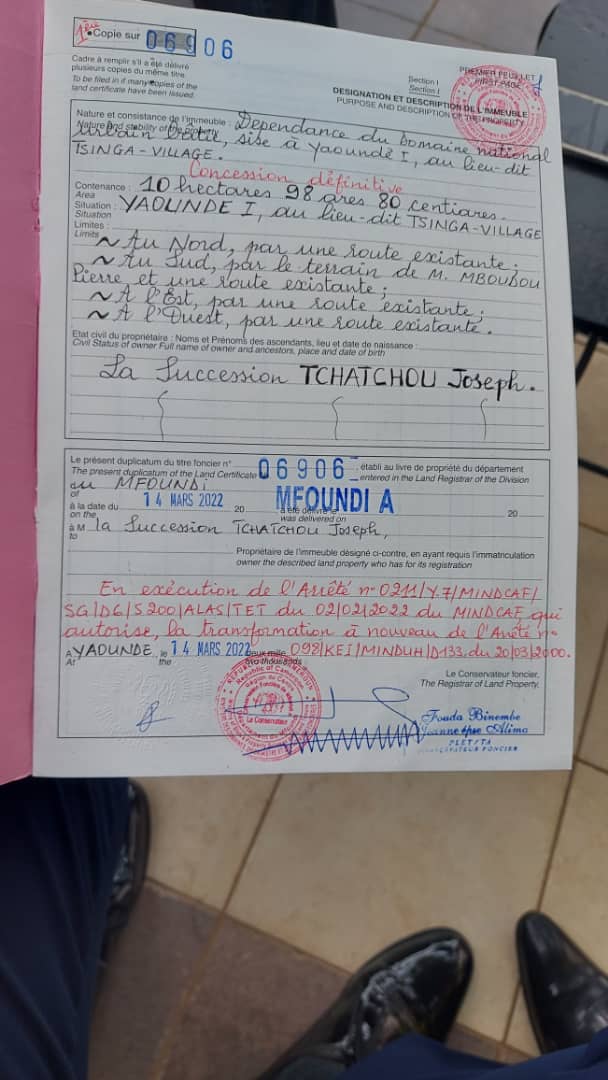 1ère Copie sur 06906
Cadre à remplir s'il a été délivré
plusieurs copies du même titre
To be filed in if many copies of the
land certificate have been issued.
PREMIER FEUILLET
FIRST PAGE
Section I
Section I
DESIGNATION ET DESCRIPTION DE L'IMMEUBLE
PURPOSE AND DESCRIPTION OF THE PROPERTY
Nature et consistance de l'immeuble : Dépendance du domaine national
Nature and stability of the property urbain bâti, sise à Yaoundé I, au lieu-dit
TSINGA-VILLAGE.
Concession définitive
Contenance : 10 hectares 98 ares 80 centiares.
Area
Situation : YAOUNDE I, au lieu-dit TSINGA-VILLAGE
Situation
Limites :
Limits
~ Au Nord, par une route existante ;
~ Au Sud, par le terrain de M. MBOUDOU
Pierre et une route existante ;
~ A l'Est, par une route existante ;
~ A l'Ouest, par une route existante.
Etat civil du propriétaire : Noms et Prénoms des ascendants, lieu et date de naissance :
Civil Status of owner Full name of owner and ancestors, place and date of birth
La Succession TCHATCHOU Joseph.
Le présent duplicatum du titre foncier n° 06906, établi au livre de propriété du département
The present duplicatum of the Land Certificate entered in the Land Registrar of the Division
du MFOUNDI
of
à la date du 14 MARS 2022 20 a été délivré le MFOUNDI A 20
on the was delivered on
à M la Succession TCHATCHOU Joseph,
to
Propriétaire de l'immeuble désigné ci-contre, en ayant requis l'immatriculation
owner the described land property who has for its registration
En exécution de l'Arrêté n° 0211/Y.7/MINDCAF/
SG/D6/S200/ALAS/TET du 02/02/2022 du MINDCAF, qui
autorise, la transformation à nouveau de l'Arrêté n°
098/KEI/MINDUH/D133 du 20/03/2000.
A YAOUNDE, le 14 MARS 2022 deux mille
At the two thousands
Le Conservateur foncier,
The Registrar of Land Property,
Le Conservateur
Fouda Binembe
Jeanne épse Alima
CONSERVATEUR FONCIER